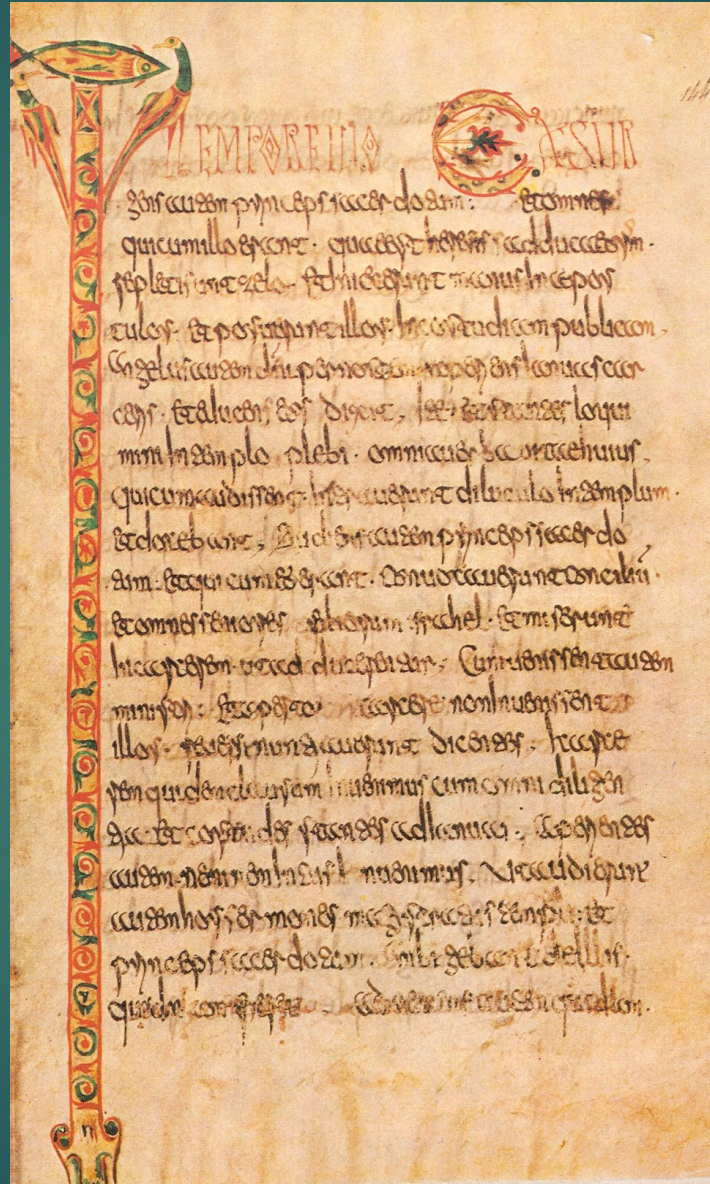 IN TEMPORE ILLO EXSUR
gens autem princeps sacerdotum. et omnes
qui cum illo erant. que est heresis adduceorum.
repleti sunt zelo. et iniecerunt manus in apos
tulos. et posuerunt illos. in custudiam publicam.
Angelus autem dni per noctem aperiens ianuas carcer
caris. et educens eos dixit. Ite et stantes loqui
mini in templo plebi. omnia uerba uite huius.
qui cum audissent. intrauerunt diluculo in templum.
et docebant. autem princeps sacerdo
tum. et qui cum eo erant. conuocauerunt conciliũ.
et omnes seniores filiorum srahel. et miserunt
in carcerem. ut adducerentur. Cum uenissent autem
ministri. et aperto carcere non inuenissent
illos. reuersi nunciauerunt dicentes. carce
rem quidem clausum inuenimus cum omni diligen
cia. et costudes stantes ad ianuas. Aperientes
autem neminem intus inuenimus. Ut audierunt
autem hos sermones magistratus templi. et
princeps sacerdotum. ambigebant de illis.
quidnam fieret. autem quidam.